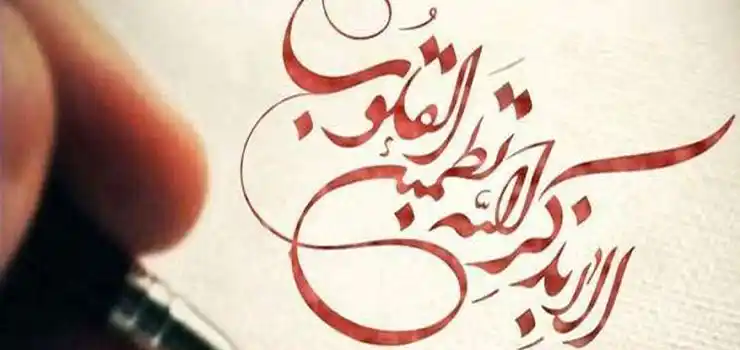 الا بذکر الله تطمئن القلوبُ